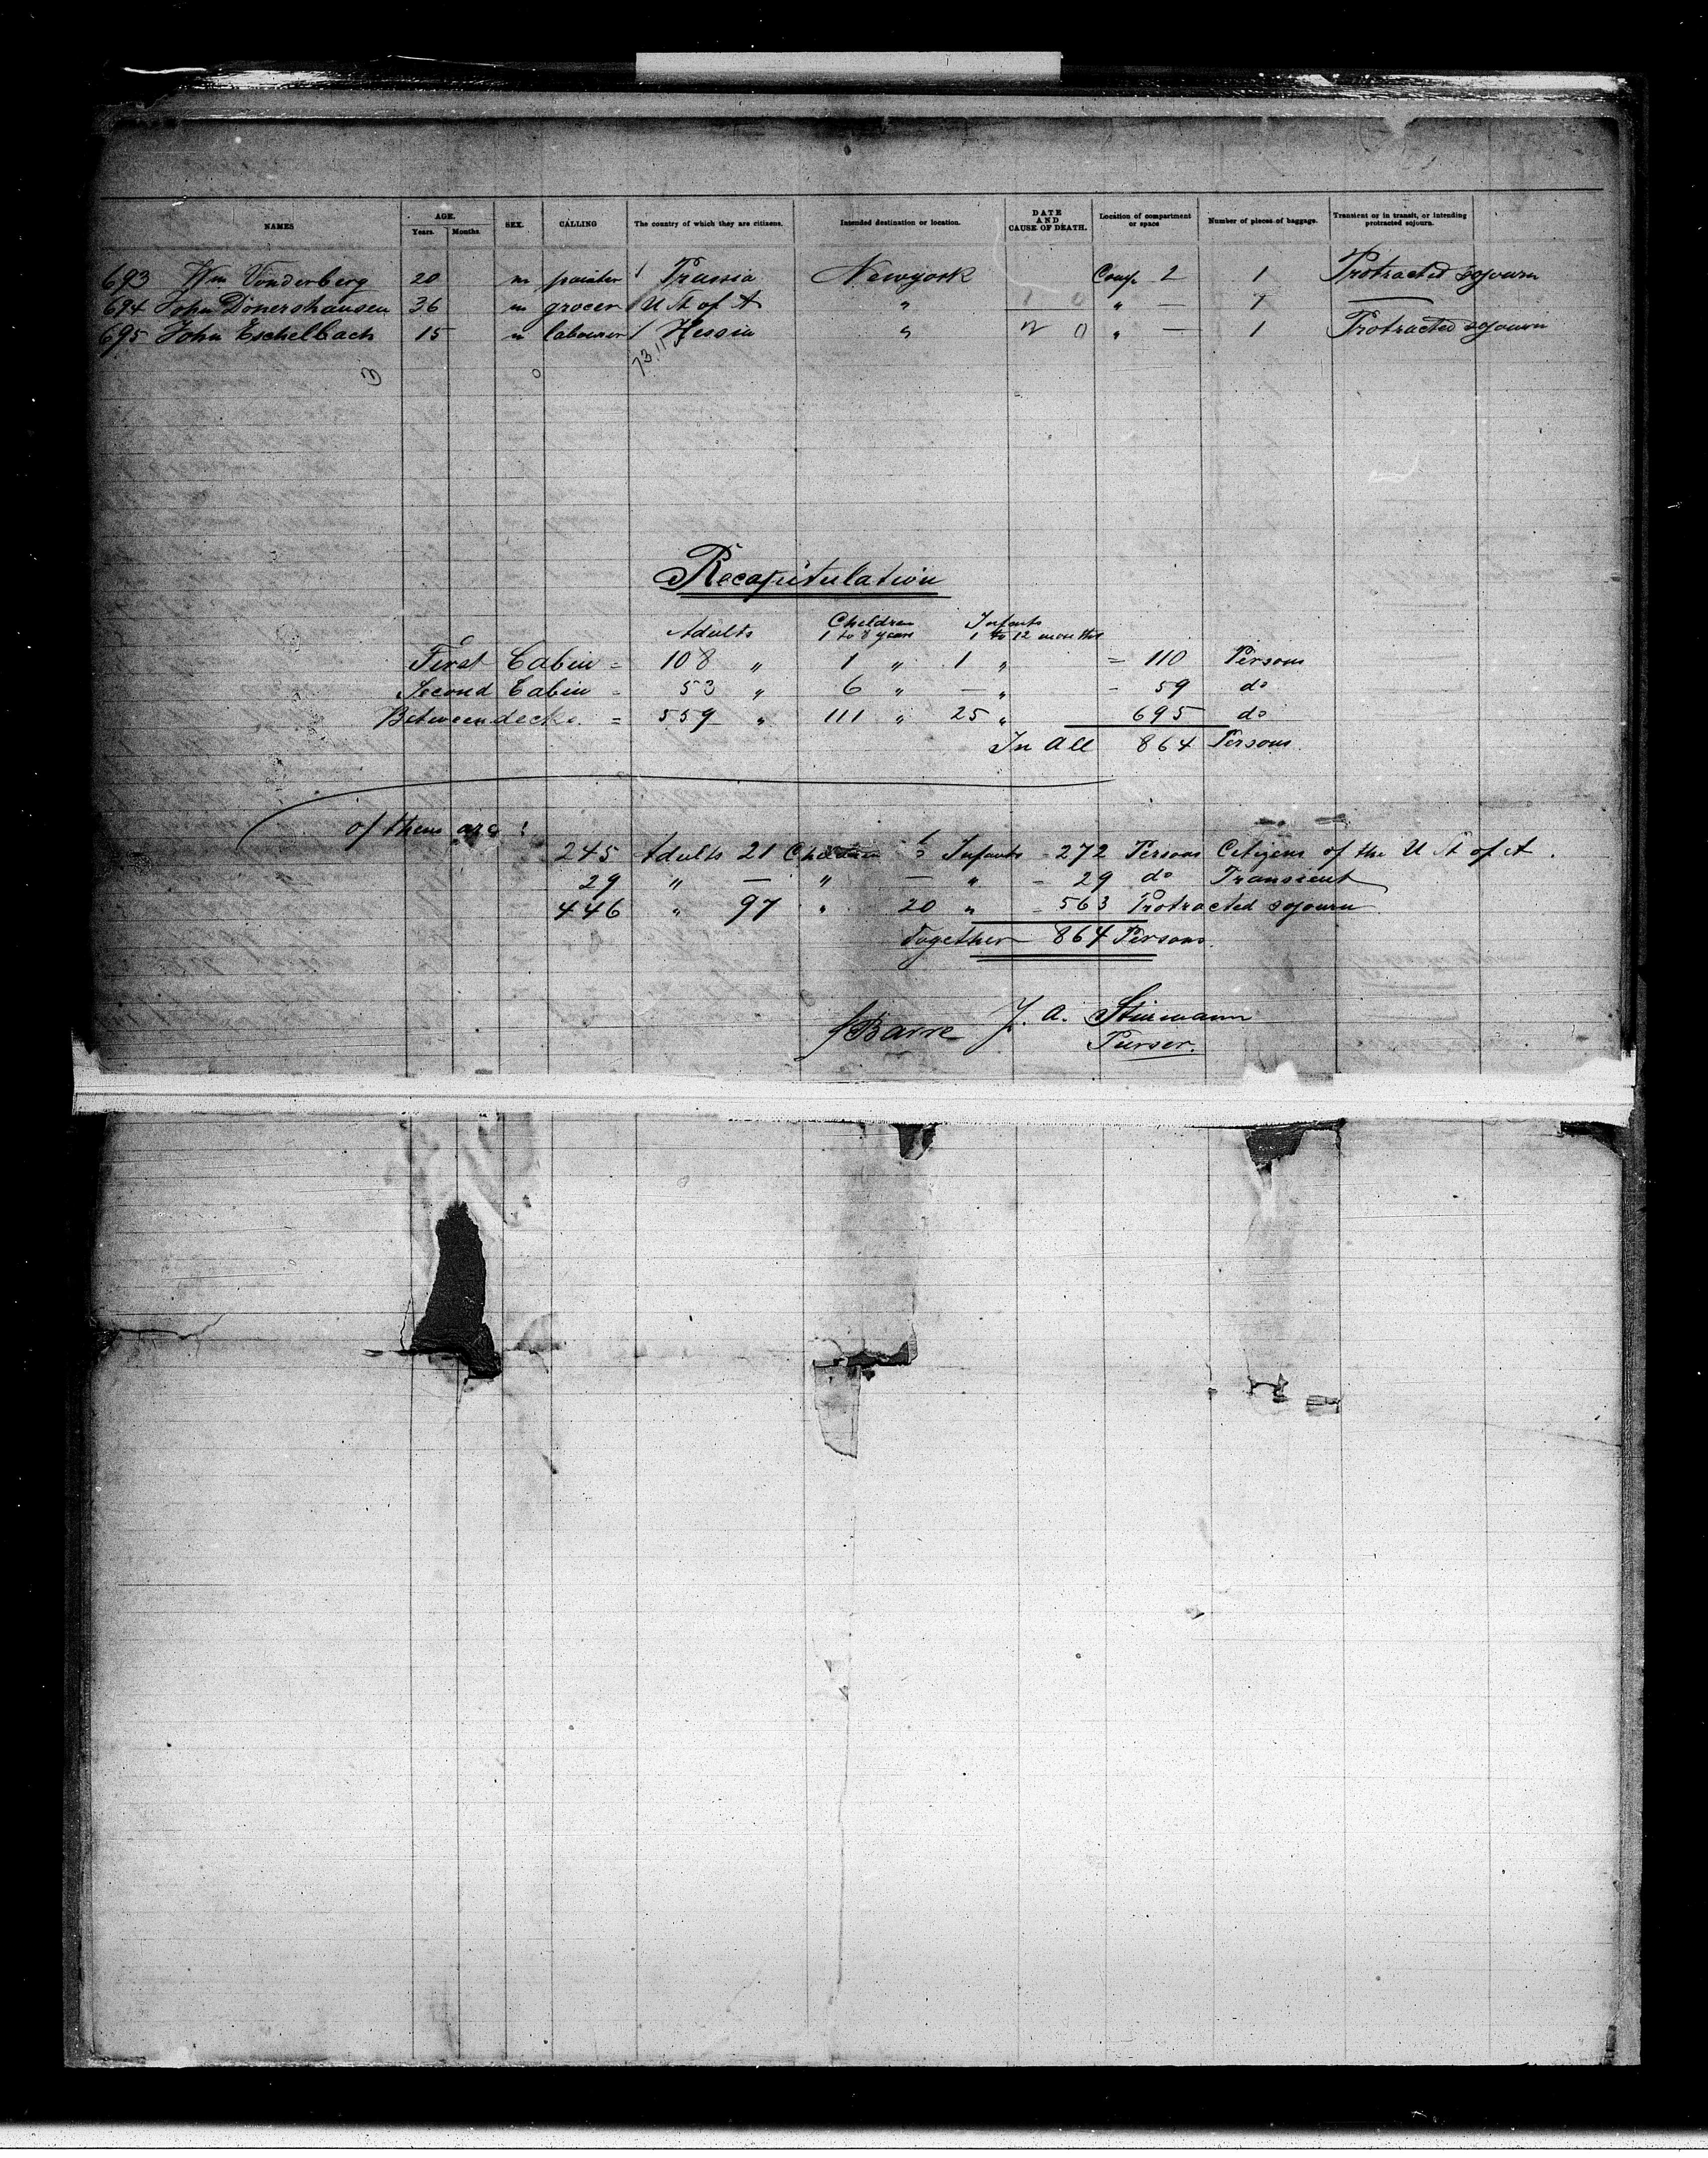 NAMES AGE. Years. Months. SEX. CALLING The country of which they are citizens. Intended destination or location. DATE AND CAUSE OF DEATH. Location of compartment or space Number of pieces of baggage. Transient or in transit, or intending protracted sojourn.
693 Wm Vonderberg 20 m painter / Prussia Newyork Comp. 2 1 Protracted sojourn
694 John Dönershausen 36 m grocer U St of A " " — 7 —
695 John Eschelbach 15 m labourer / Hessia " " — 1 Protracted sojourn
Recapitulation
Adults Children 1 to 8 years Infants 1 to 12 months
First Cabin = 108 " 1 " 1 " = 110 Persons
Second Cabin = 53 " 6 " — " = 59 do
Betweendecks. = 559 " 111 " 25 " 695 do
In All 864 Persons.
of them are:
245 Adults 21 Children 6 Infants = 272 Persons Citizens of the U St of A.
29 " — " — " = 29 do Transient
446 " 97 " 20 " = 563 Protracted sojourn
Together 864 Persons.
Barre J. A. Stürmann
Purser.